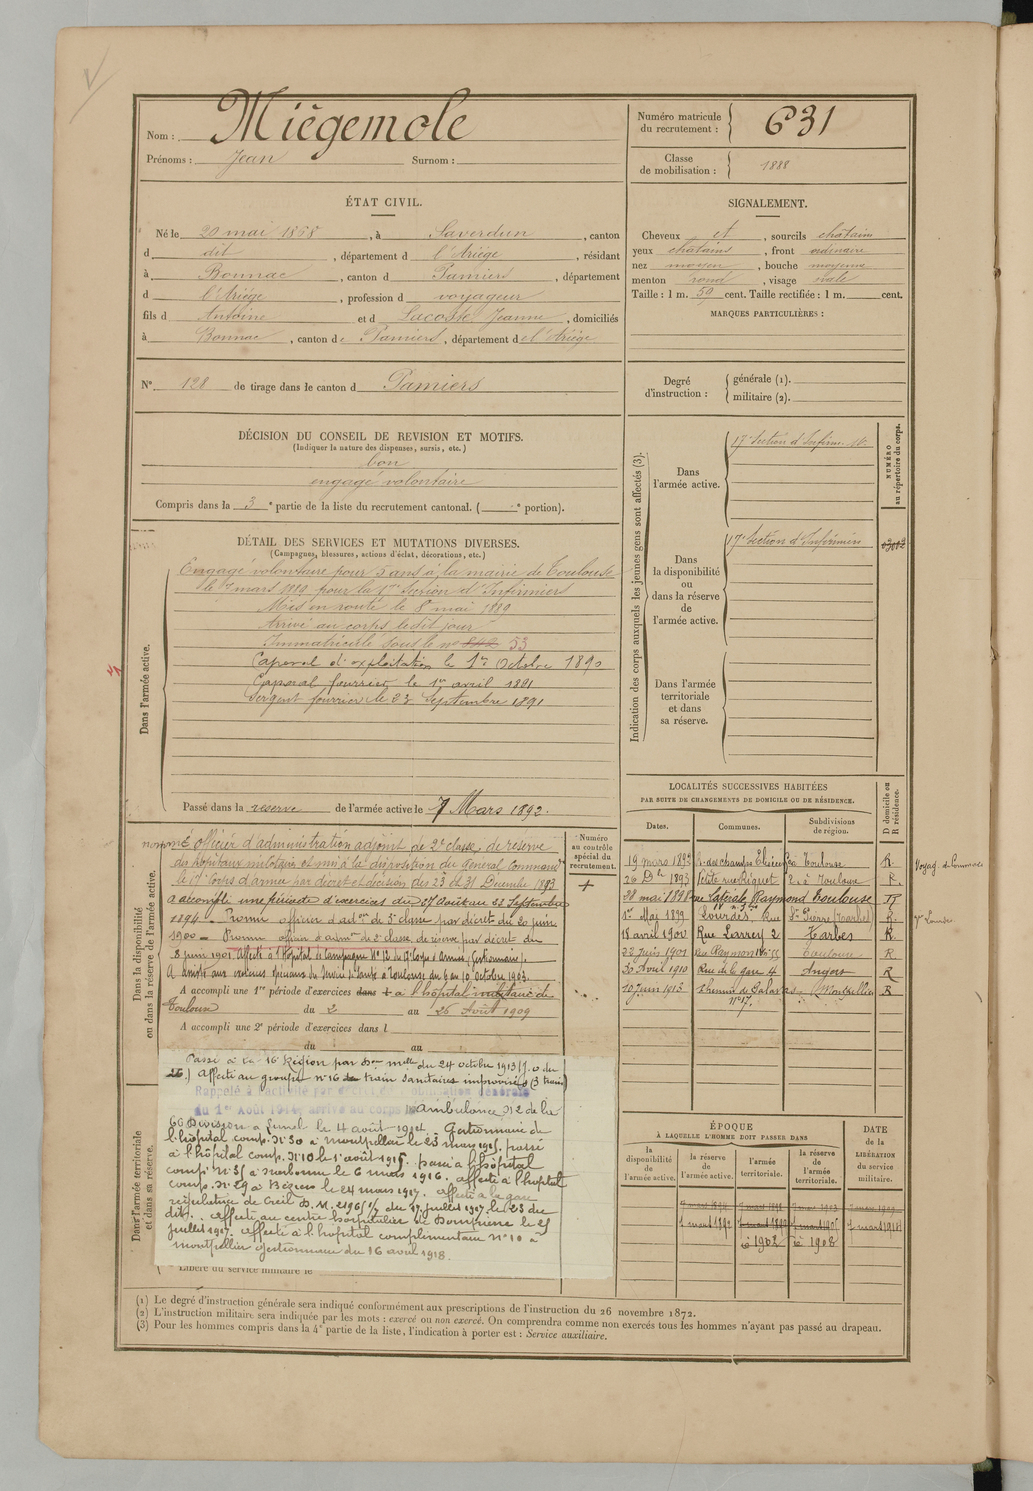 Nom : Miègemole
Prénoms : Jean Surnom :
Numéro matricule du recrutement : 631
Classe de mobilisation : 1888
ÉTAT CIVIL.
Né le 20 mai 1868, à Saverdun, canton
d dit, département d l'Ariège, résidant
à Bonnac, canton d Pamiers, département
d l'Ariège, profession d voyageur
fils d Antoine et d Lacoste Jeanne, domiciliés
à Bonnac, canton de Pamiers, département de l'Ariège
N° 128 de tirage dans le canton d Pamiers
SIGNALEMENT.
Cheveux et, sourcils chatains
yeux chatains, front ordinaire
nez moyen, bouche moyenne
menton rond, visage ovale
Taille : 1 m. 59 cent. Taille rectifiée : 1 m. cent.
MARQUES PARTICULIÈRES :
Degré d'instruction : générale (1).
militaire (2).
DÉCISION DU CONSEIL DE REVISION ET MOTIFS.
(Indiquer la nature des dispenses, sursis, etc.)
bon
engagé volontaire
Compris dans la 3e partie de la liste du recrutement cantonal. ( e portion).
DÉTAIL DES SERVICES ET MUTATIONS DIVERSES.
(Campagnes, blessures, actions d'éclat, décorations, etc.)
Dans l'armée active.
Engagé volontaire pour 5 ans à la mairie de Toulouse
le 7 mars 1889 pour la Section d'Infirmiers
Mis en route le 8 mai 1889
Arrivé au corps ledit jour
Immatriculé sous le no 53
Caporal d'exploitation le 1er Octobre 1890
Caporal fourrier le 1er avril 1891
Sergent fourrier le 23 Septembre 1891
Passé dans la reserve de l'armée active le 7 Mars 1892.
Indication des corps auxquels les jeunes gens sont affectés (3).
NUMÉRO au répertoire du corps.
Dans l'armée active.
17e Section d'Infirm.
Dans la disponibilité ou dans la réserve de l'armée active.
17e Section d'Infirmiers
Dans l'armée territoriale et dans sa réserve.
LOCALITÉS SUCCESSIVES HABITÉES
PAR SUITE DE CHANGEMENTS DE DOMICILE OU DE RÉSIDENCE.
Dates. Communes. Subdivisions de région. D domicile ou R résidence.
19 mars 1893 Toulouse R.
26 Dbre 1893 petite rue Riquet 2, à Toulouse R.
28 mai 1898 rue latérale Raymond IV Toulouse
1er Mai 1899 Lourdes, Rue St Pierre (Tarbes) R.
18 avril 1900 Rue Larrey 2 Tarbes R.
22 Juin 1901 Rue Raymond IV 55 Toulouse R
30 Avril 1910 Rue de la gare 4 Angers R
10 juin 1913 Chemin de Palavas Montpellier R
n° 17.
Dans la disponibilité ou dans la réserve de l'armée active.
Numéro au contrôle spécial du recrutement.
nommé officier d'administration adjoint de 2e classe, de réserve
des hôpitaux militaires et mis à la disposition du Général Command.
le 17e Corps d'armée par décret et décision des 23 et 31 Decembre 1893
a accompli une periode d'exercices du 27 août au 23 Septembre
1894 - Promu officier d'adon de 3e classe par décret du 20 juin
1900 - Promu officier d'admon de 2e classe de réserve par décret du
8 juin 1901. Affecté à l'Hôpital de Campagne N° 12 du 17e Corps d'Armée (Gestionnaire).
A assisté aux exercices spéciaux du Service de Santé à Toulouse du 6 au 10 octobre 1903.
A accompli une 1re période d'exercices dans l à l'hôpital militaire de
Toulouse du 2 au 26 Août 1909
A accompli une 2e période d'exercices dans l
du au
Passé à la 16e Région par Don mlle du 24 octobre 1913 (J.O du
26.) Affecté au groupe n° 16 de train sanitaires improvisés (3 trains)
Rappelé à l'activité par décret de mobilisation générale
du 1er Août 1914, arrivé au corps le ambulance N° 2 de la
66 Division à Lunel le 4 août 1914. Gestionnaire de
l'hôpital comp. N° 30 à Montpellier le 23 mars 1915. passé
à l'hôpital comp. N° 10 le 1er août 1915. passé à l'hôpital
comp. N° 35 à Narbonne le 6 mars 1916. affecté à l'hôpital
comp. N° 29 à Béziers le 24 mars 1917. affecté à la gare
régulatrice de Creil D.M. 2196 1/7 du 17 juillet 1917 le 23 du
dit. affecté au centre hospitalier de Dompierre le 25
juillet 1917. affecté à l'hôpital complémentaire N° 10 à
Montpellier Gestionnaire du 16 avril 1918.
Dans l'armée territoriale et dans sa réserve.
Libéré du service militaire le
ÉPOQUE
À LAQUELLE L'HOMME DOIT PASSER DANS
la disponibilité de l'armée active. la réserve de l'armée active. l'armée territoriale. la réserve de l'armée territoriale.
DATE de la LIBÉRATION du service militaire.
7 mars 1892 7 mars 1899 7 mars 1905 7 mars 1914
1902 1908
(1) Le degré d'instruction générale sera indiqué conformément aux prescriptions de l'instruction du 26 novembre 1872.
(2) L'instruction militaire sera indiquée par les mots : exercé ou non exercé. On comprendra comme non exercés tous les hommes n'ayant pas passé au drapeau.
(3) Pour les hommes compris dans la 4e partie de la liste, l'indication à porter est : Service auxiliaire.